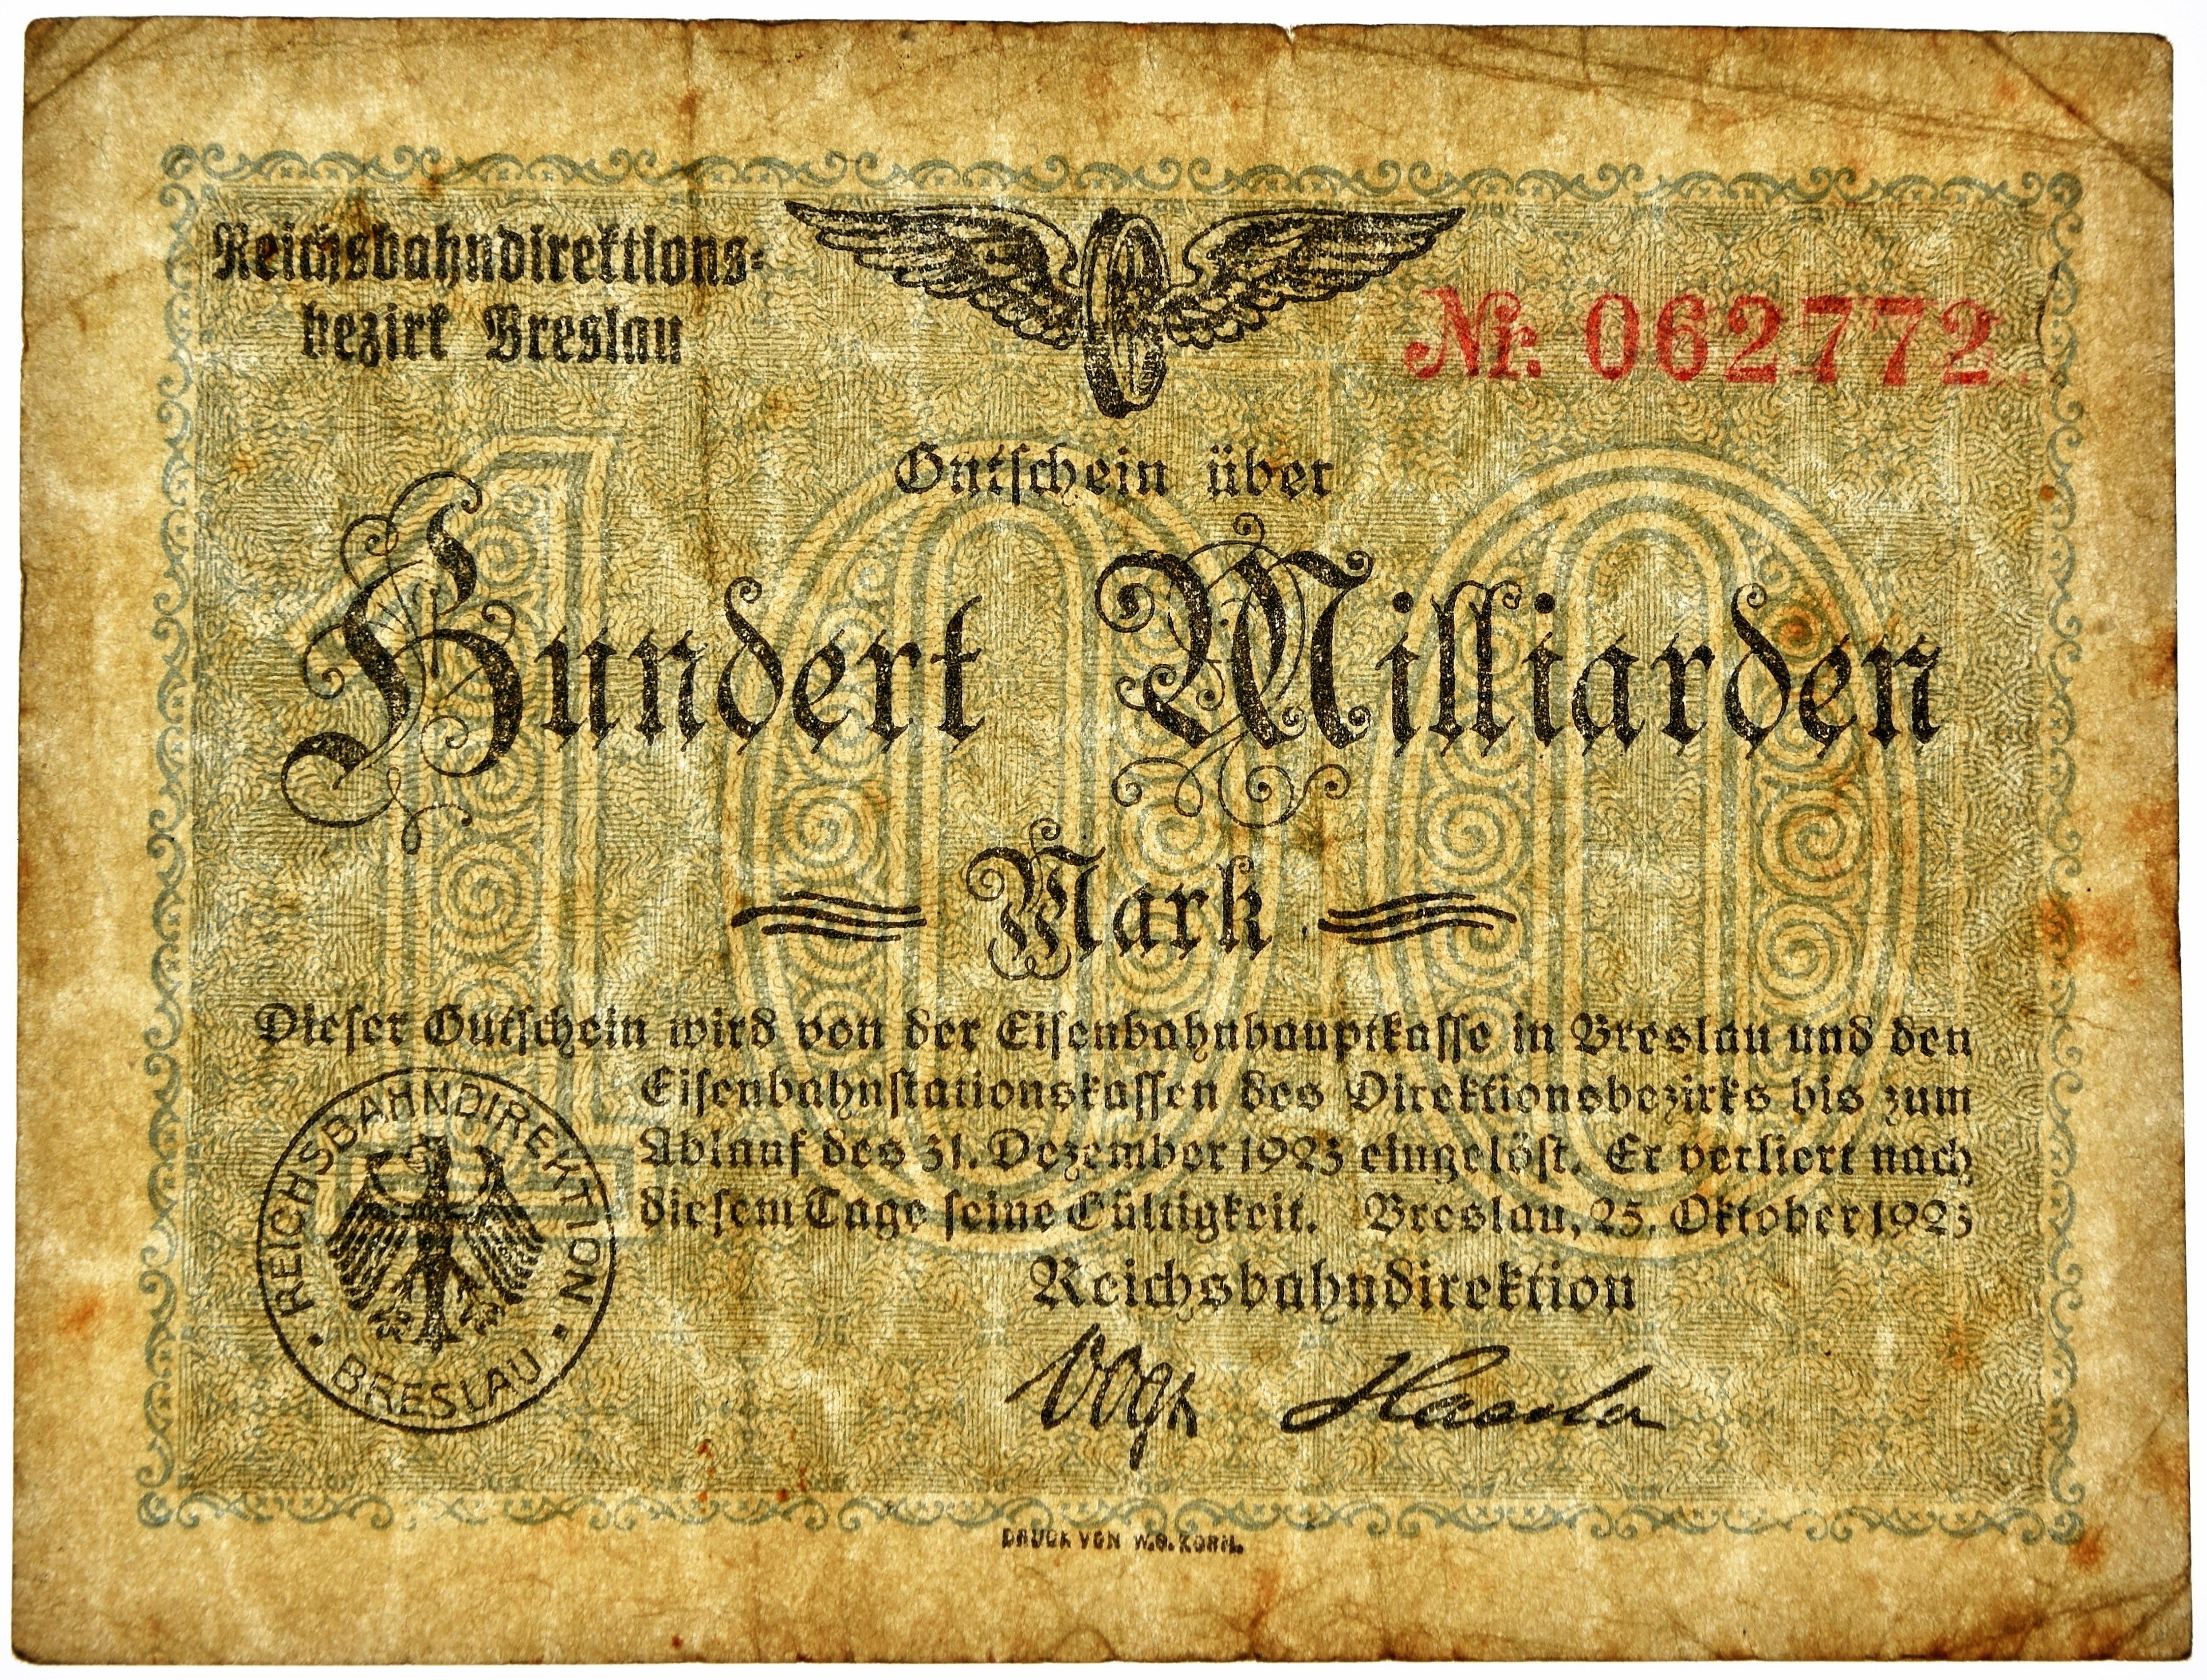 Reichsbahndirektions-
bezirk Breslau
Nr. 062772
Gutschein über
Hundert Milliarden
Mark
Dieser Gutschein wird von der Eisenbahnhauptkasse in Breslau und den
Eisenbahnstationskassen des Direktionsbezirks bis zum
Ablauf des 31. Dezember 1923 eingelöst. Er verliert nach
diesem Tage seine Gültigkeit. Breslau, 25. Oktober 1923
REICHSBAHNDIREKTION
BRESLAU
Reichsbahndirektion
DRUCK VON W.G. KORN.
100